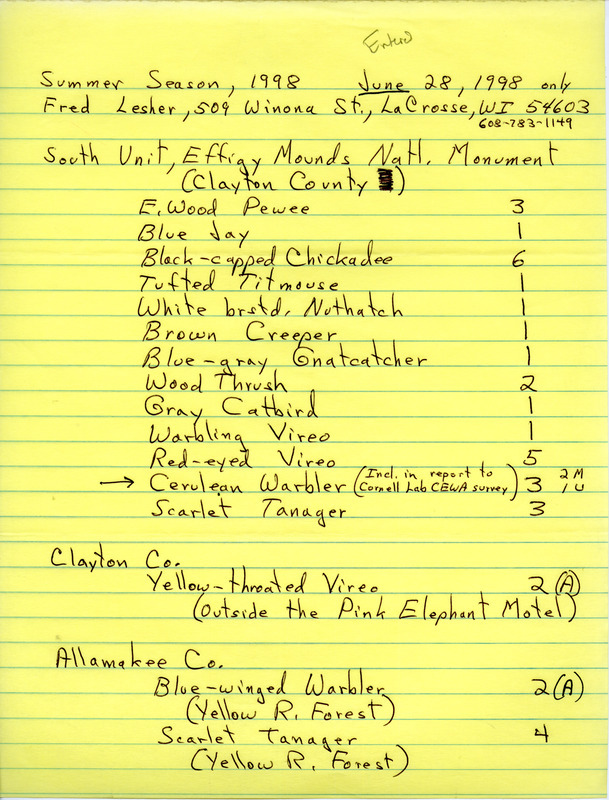 Entered
Summer Season, 1998 June 28, 1998 only
Fred Lesher, 509 Winona St., LaCrosse, WI 54603
608-783-1149
South Unit, Effigy Mounds Natl. Monument
(Clayton County )
E. Wood Pewee 3
Blue Jay 1
Black-capped Chickadee 6
Tufted Titmouse 1
White brstd. Nuthatch 1
Brown Creeper 1
Blue-gray Gnatcatcher 1
Wood Thrush 2
Gray Catbird 1
Warbling Vireo 1
Red-eyed Vireo 5
→ Cerulean Warbler (Incl. in report to Cornell Lab CEWA survey) 3 2 M 1 U
Scarlet Tanager 3
Clayton Co.
Yellow-throated Vireo 2 (A)
(Outside the Pink Elephant Motel)
Allamakee Co.
Blue-winged Warbler 2 (A)
(Yellow R. Forest)
Scarlet Tanager 4
(Yellow R. Forest)